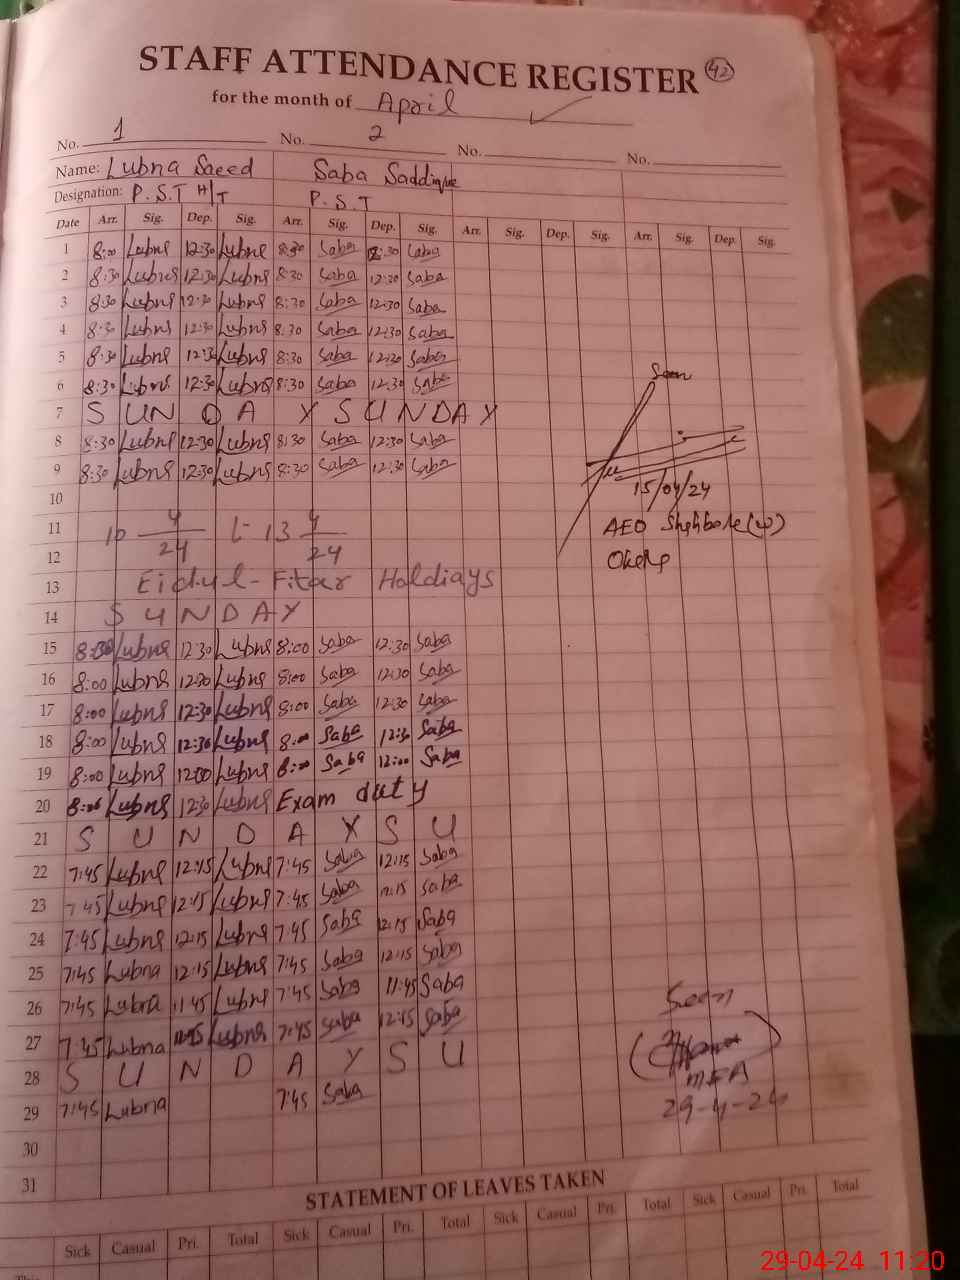 STAFF ATTENDANCE REGISTER 42
for the month of April
No. 1 No. 2 No. No.
Name: Lubna Saeed Saba Saddique
Designation: P.S.T H/T P.S.T
Date Arr. Sig. Dep. Sig. Arr. Sig. Dep. Sig. Arr. Sig. Dep. Sig. Arr. Sig. Dep. Sig.
1 8:00 Lubna 12:30 Lubna 8:30 Saba 12:30 Saba
2 8:30 Lubna 12:30 Lubna 8:30 Saba 12:30 Saba
3 8:30 Lubna 12:30 Lubna 8:30 Saba 12:30 Saba
4 8:30 Lubna 12:30 Lubna 8:30 Saba 12:30 Saba
5 8:30 Lubna 12:30 Lubna 8:30 Saba 12:30 Saba
6 8:30 Lubna 12:30 Lubna 8:30 Saba 12:30 Saba
Seen
7 SUNDAY SUNDAY
8 8:30 Lubna 12:30 Lubna 8:30 Saba 12:30 Saba
9 8:30 Lubna 12:30 Lubna 8:30 Saba 12:30 Saba
15/04/24
10
11 10 4/24 13 4/24
AEO (W)
12
13 Eidul-Fitar Holdiays
14 SUNDAY
15 8:00 Lubna 12:30 Lubna 8:00 Saba 12:30 Saba
16 8:00 Lubna 12:30 Lubna 8:00 Saba 12:30 Saba
17 8:00 Lubna 12:30 Lubna 8:00 Saba 12:30 Saba
18 8:00 Lubna 12:30 Lubna 8:00 Saba 12:30 Saba
19 8:00 Lubna 12:00 Lubna 8:00 Saba 12:00 Saba
20 8:00 Lubna 12:30 Lubna Exam duty
21 SUNDAY SU
22 7:45 Lubna 12:15 Lubna 7:45 Saba 12:15 Saba
23 7:45 Lubna 12:15 Lubna 7:45 Saba 12:15 Saba
24 7:45 Lubna 12:15 Lubna 7:45 Saba 12:15 Saba
25 7:45 Lubna 12:15 Lubna 7:45 Saba 12:15 Saba
26 7:45 Lubna 11:45 Lubna 7:45 Saba 11:45 Saba
Seen
27 7:45 Lubna Lubna 7:45 Saba 12:15 Saba
28 SUNDAY SU
MEA
29 7:45 Lubna 7:45 Saba
29-4-24
30
31
STATEMENT OF LEAVES TAKEN
Sick Casual Pri. Total Sick Casual Pri. Total Sick Casual Pri. Total Sick Casual Pri. Total
29-04-24 11:20